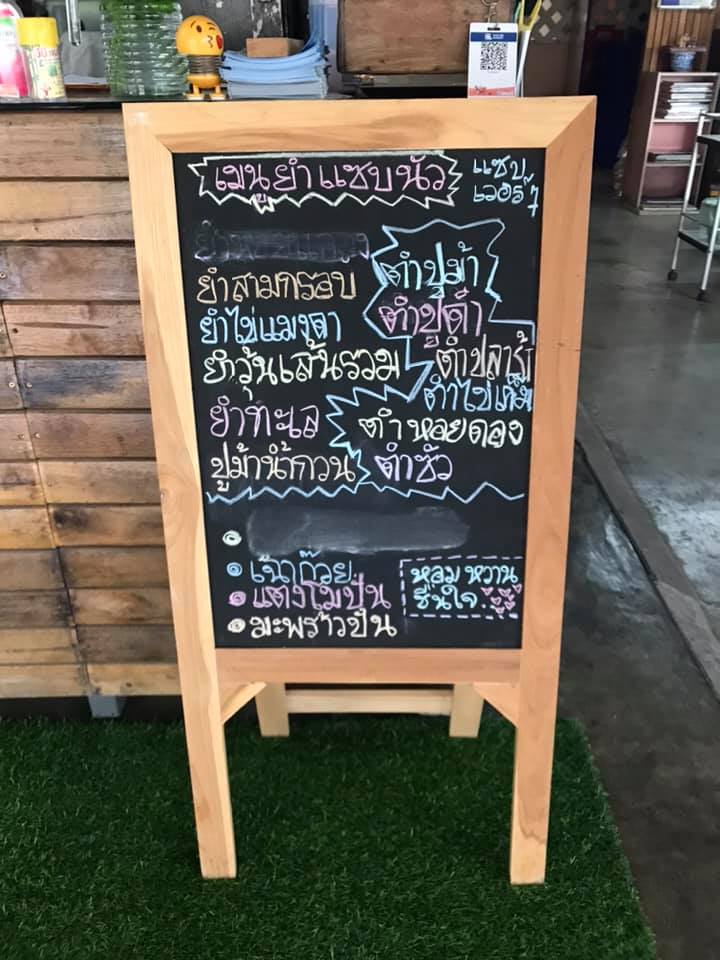 เมนูยำแซบนัว
แซบ
เวอร์ๆ
ยำสามกรอบ
ยำไข่แมงดา
ยำวุ้นเส้นรวม
ยำทะเล
ปูม้าน้ำกวน
ตำปูม้า
ตำปูดำ
ตำปลาร้า
ตำไข่เค็ม
ตำหอยดอง
ตำซั่ว
เฉาก๊วย
แตงโมปั่น
มะพร้าวปั่น
หอม หวาน
ชื่นใจ